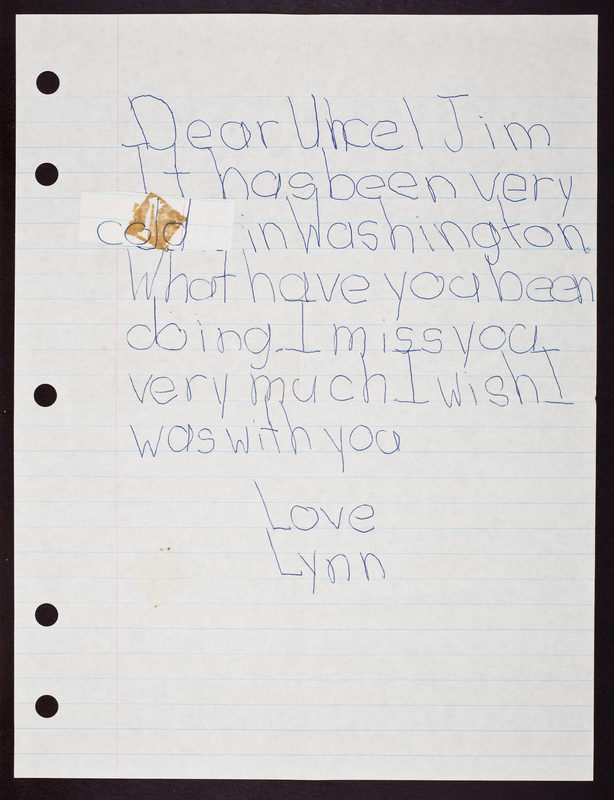 Dear Uncel Jim
It has been very
cold in Washington.
What have you been
doing. I miss you
very much I wish I
was with you
Love
Lynn